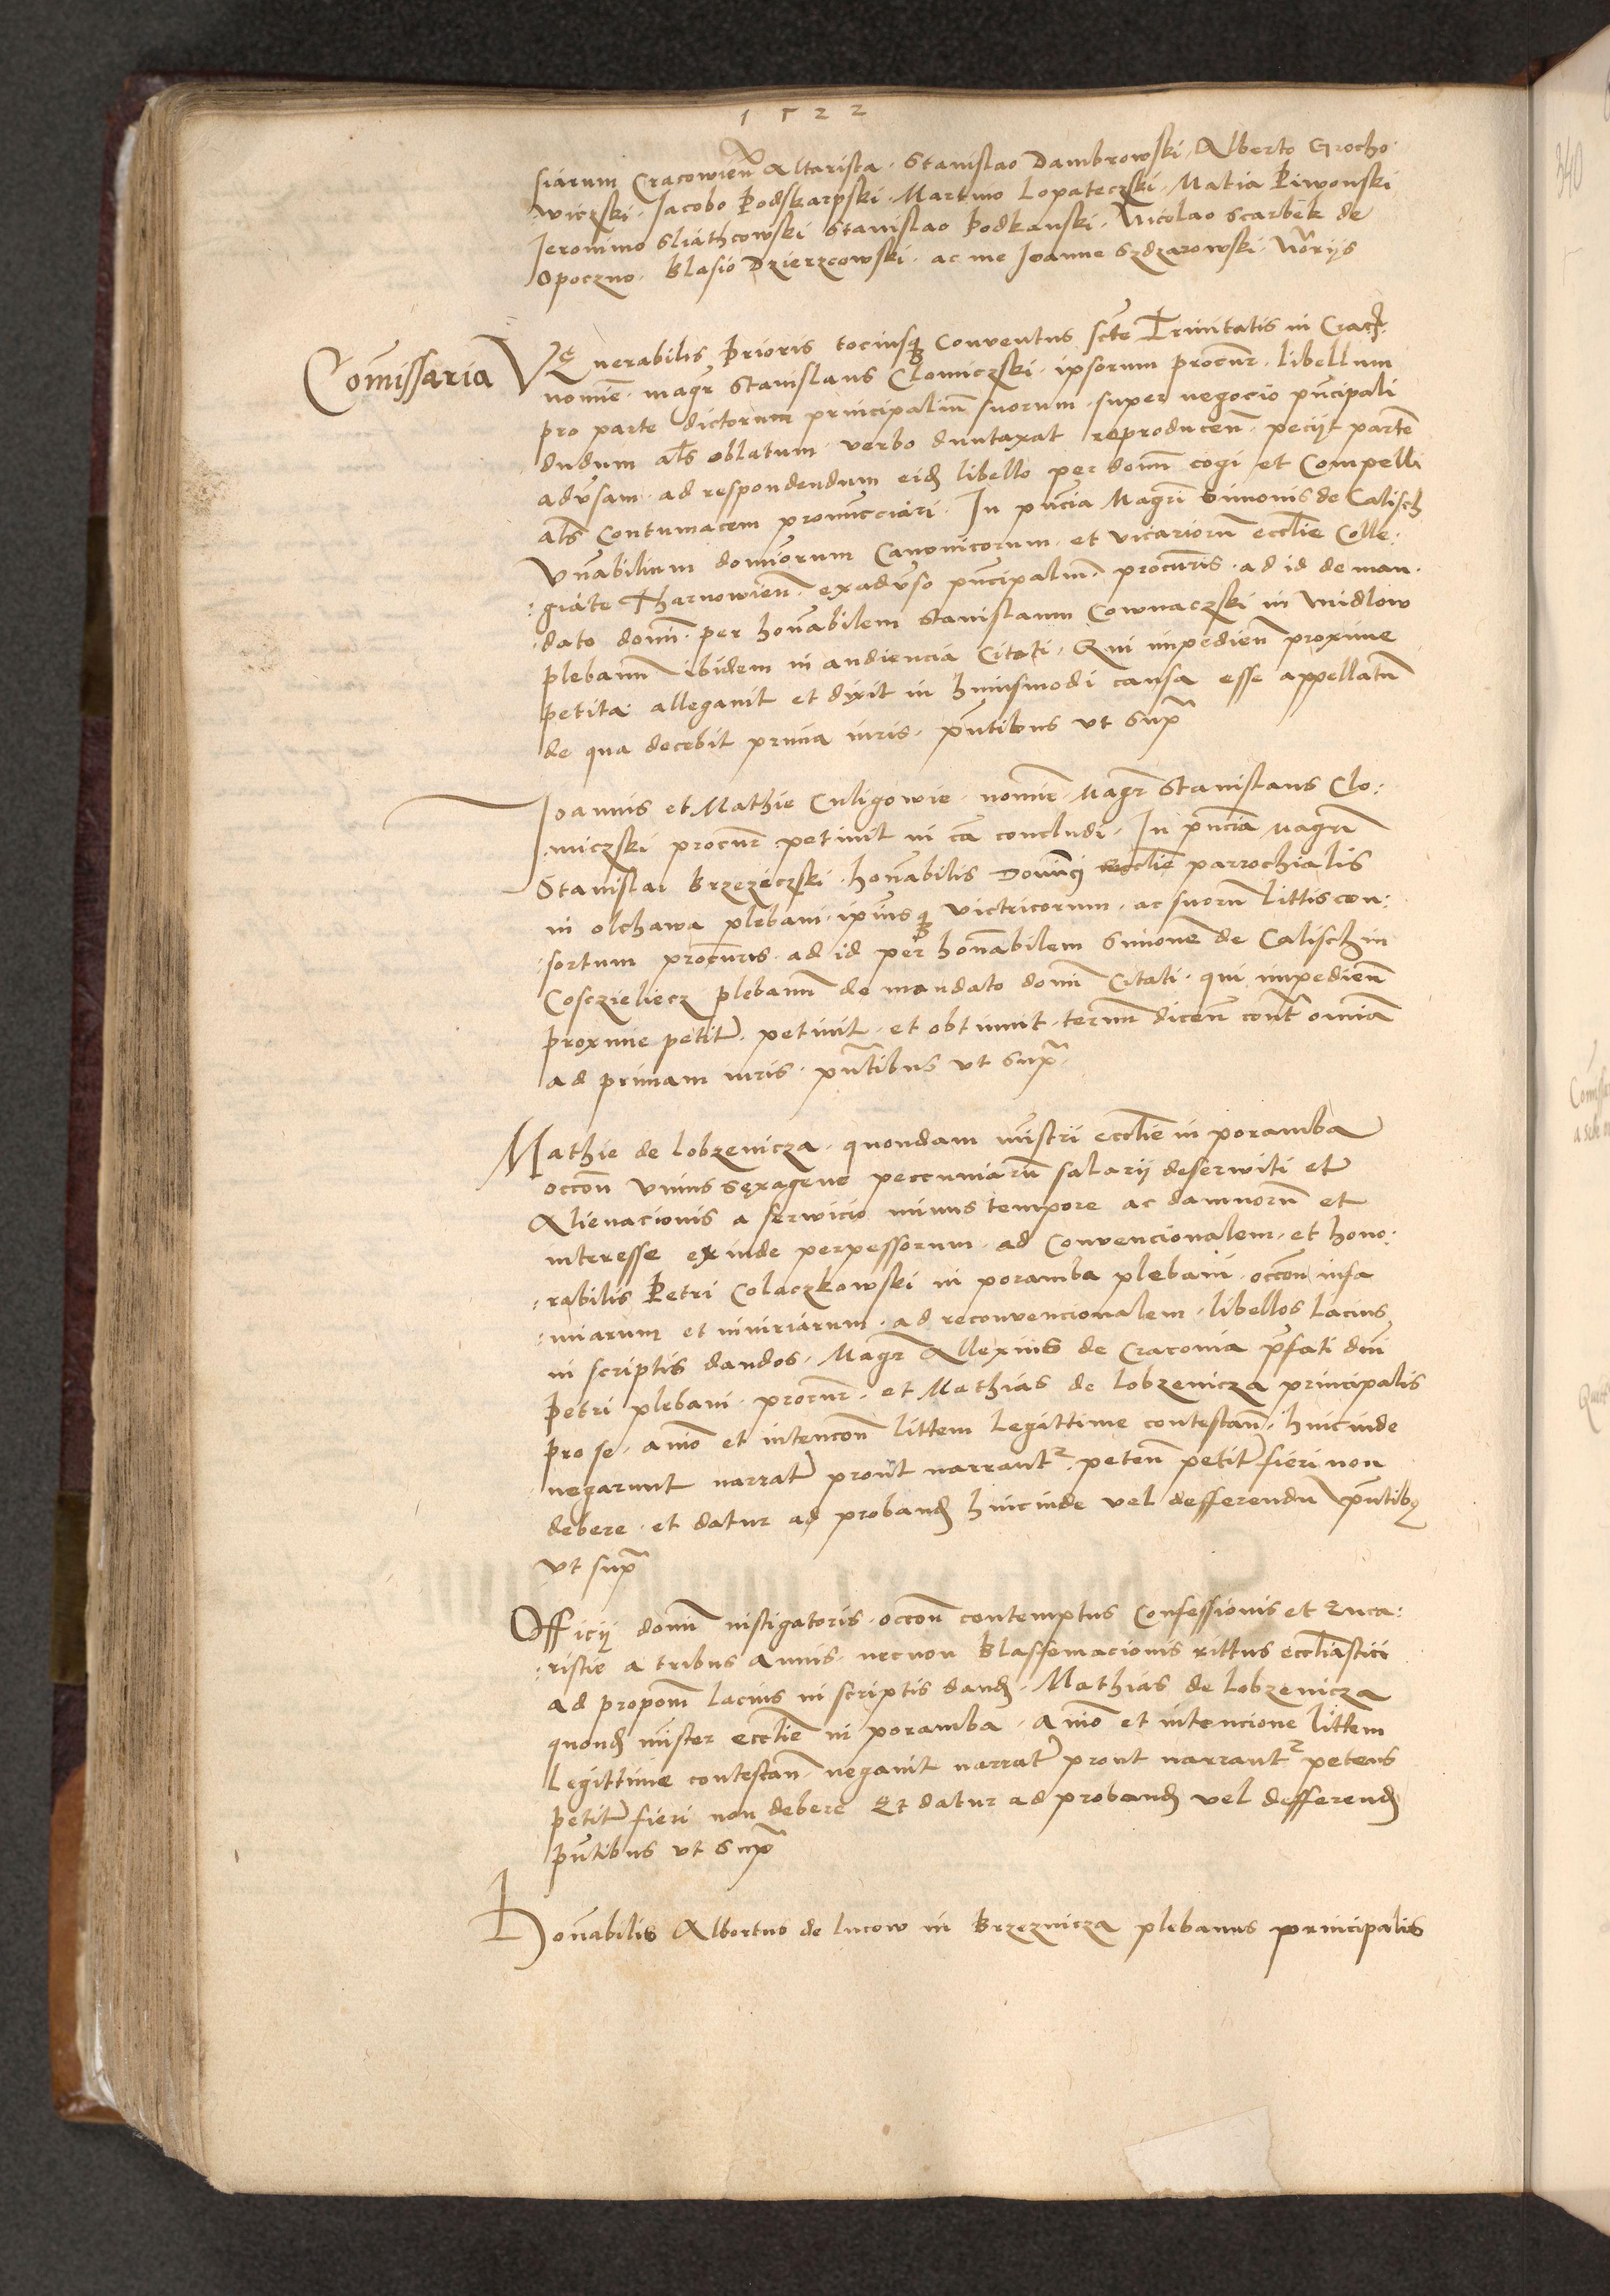 1522
siarum Cracowien̄ Altarista · Stanislao Dambrowski · Alberto Grocho·
wiczski · Jacobo Podskarpski · Martino Lopateczski · Matia Piwonski
Jeronimo Sliathcowski Stanislao Podkanski · Nicolao Scarbek de
Opoczno · Blasio Dzierzcowski · ac me Joanne Szdzarowski · Nōrijs
Com̄issaria
Venerabilis Prioris tociusq₃ Conventus scte Trinitatis in Crac̄
nomie · magr̄ Stanislaus Clomiczski · ipsorum procur̄ · libellum
pro parte dictorum principaliū suorum · super negocio pn̄cipali
dudum als oblatum · verbo duntaxat reproducen̄ · peciit partē
adūsam · ad respondendum eid̄ libello per dom̄ cogi et Compelli
als Contumacem pronuncciari · In pn̄cia Magri Simonis de Calisch
Vn̄abilium dominorum Canonicorum · et vicariorū ecclie Colle:
:giate Tharnowien̄ · exadūso pn̄cipaliū · procuris · ad id de man·
·dato dom̄ · per honābilem Stanislaum Cownaczski in Midlow
plebanū ibidem in audiencia Citati · Qui impedien̄ proxime
petita allegauit et dixit in huiusmodi causa esse appellatū
de qua docebit prima iuris · pn̄tibus vt sup̄
Joannis et Mathie Culigowie · nomie · Magr̄ Stanislaus Clo:
:miczski procur̄ petiuit in cā concludi · In pn̄cia Magri
Stanislai Brzezeczski · honābilis Dominici ecclie parrochialis
in olchawa plebani · ipiusq₃ victricorum · ac suorū littis con:
:sortum procuris · ad id per honābilem Simonē de Calisch in
Cosczieliecz plebanū de mandato dom̄ Citati · qui impedien̄
proxime petit̄ · petiuit · et obtinuit · termī dicen̄ contr̄ om̄ia
ad primam iuris · pn̄tibus vt sup̄ ·
Mathie de Lobzenicza · quondam mīstri ecclie in poramba
occōn vnius sexagene peccuniarū salarii deserwiti et
Alienacionis a serwicio minus tempore ac damnorū et
interesse exinde perpessorum · ad Convencionalem · et hono:
:rabilis Petri Colaczkowski in poramba plebani · occōn infa
:miarum et iniuriarum · ad reconvencionalem · libellos lacius
in scriptis dandos · Magr̄ Allexius de Cracouia p̄fati dn̄i
Petri plebani · procur̄ · et Mathias de Lobzenicza principalis
pro se · aīo et intencōn littem legittime contestan̄ · hincinde
negarunt narrat̄ prout narrant² · peten̄ petit̄ fieri non
debere · et datur ad proband̄ hincinde vel defferendū pn̄tibȝ
vt sup̄
Officij dom̄ instigatoris · occōn contemptus Confessionis et Euca:
:ristie a tribus Annis · necnon Blassemacionis rittus eccliastici
ad propom̄ lacius in scriptis dand̄ · Mathias de Lobzenicza
quond̄ mīster ecclie in poramba · aīo et intencione littem
legittime contestan̄ · negauit narrat̄ prout narrant² petens
petit̄ fieri non debere Et datur ad proband̄ vel defferend̄
pn̄tibus vt sup̄
Honābilis Albertus de lucow in Brzeznicza plebanus principalis